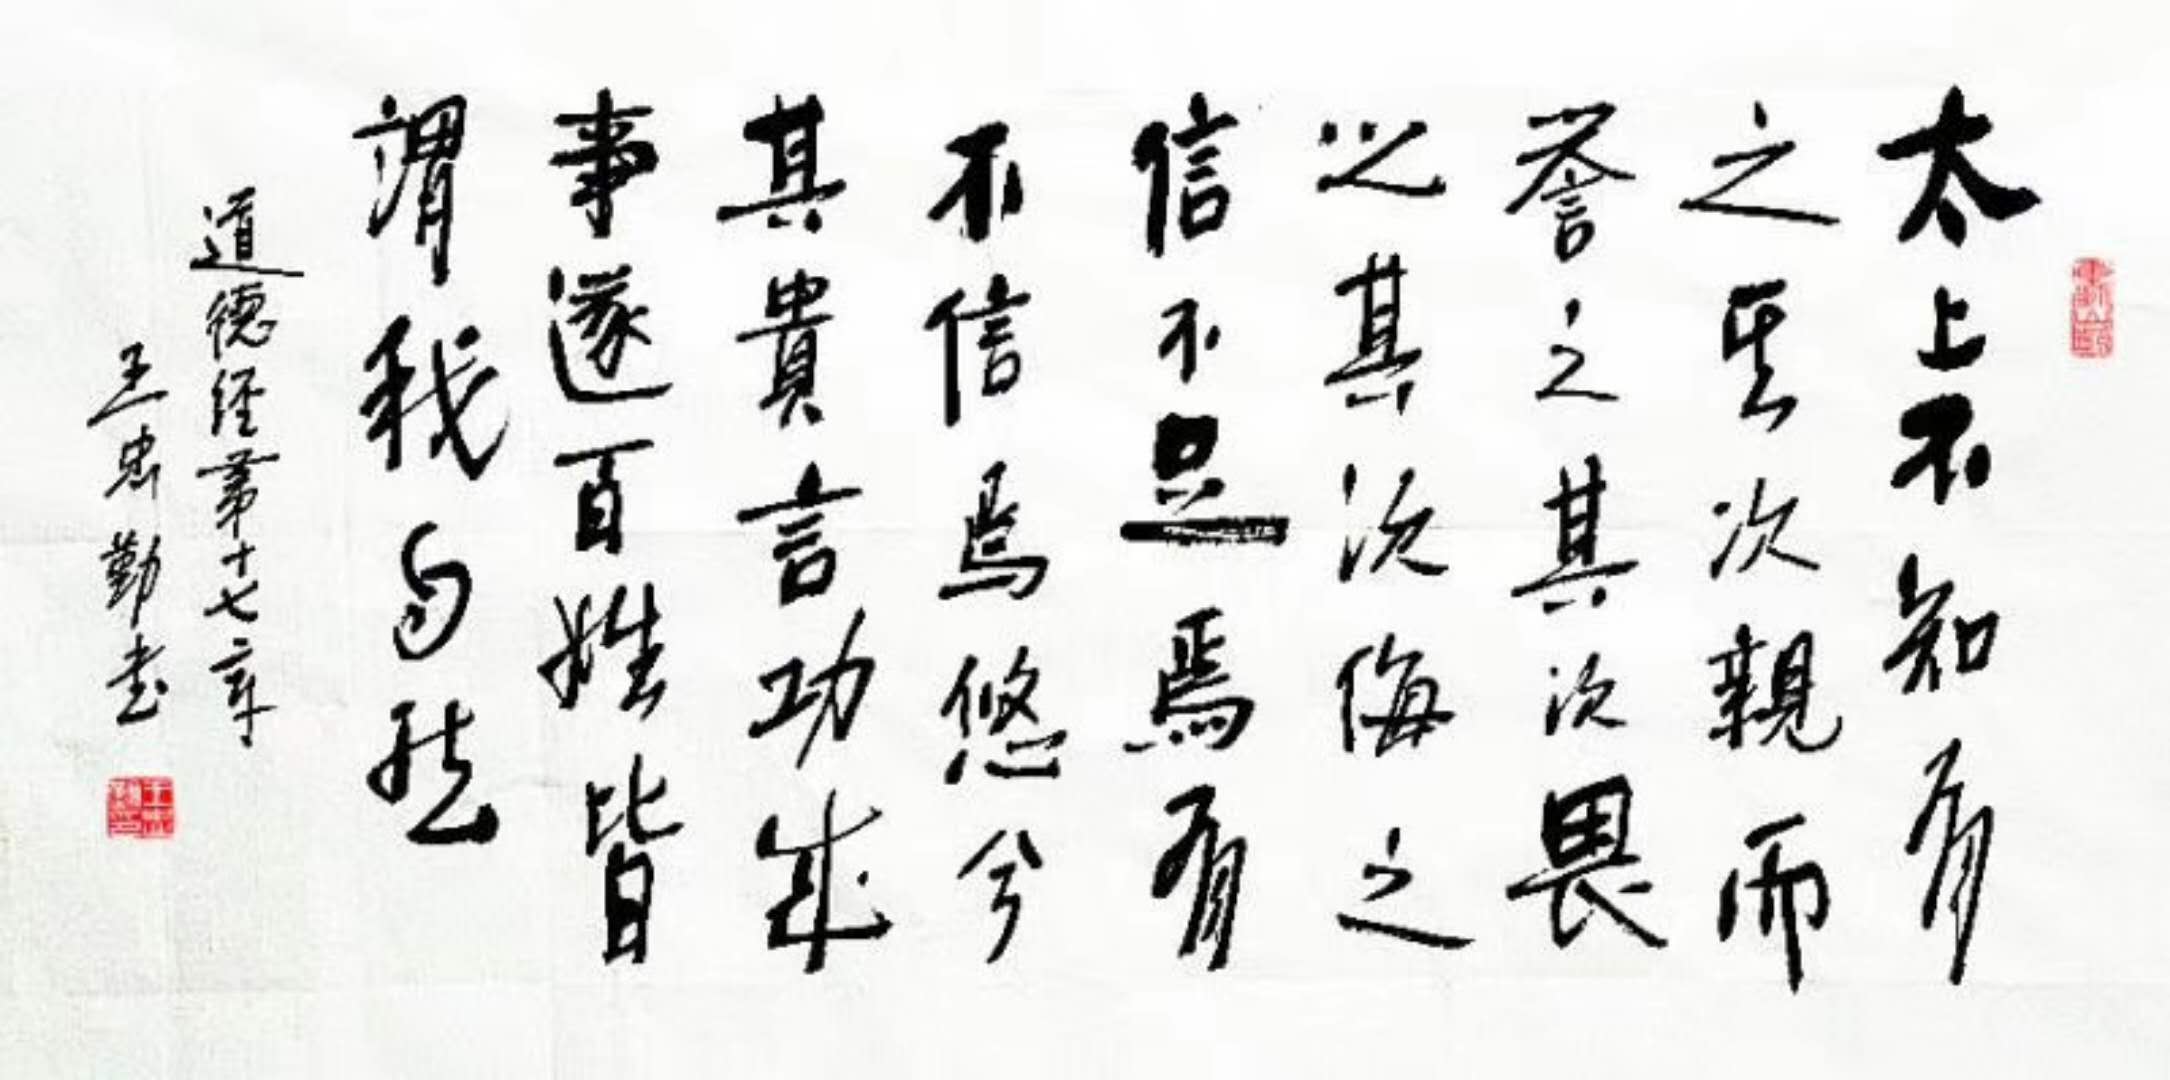 太上不知有
之其次親而
誉之其次畏
之其次侮之
信不足焉有
不信焉悠兮
其貴言功成
事遂百姓皆
謂我自然
道德经第十七章
王忠勤书